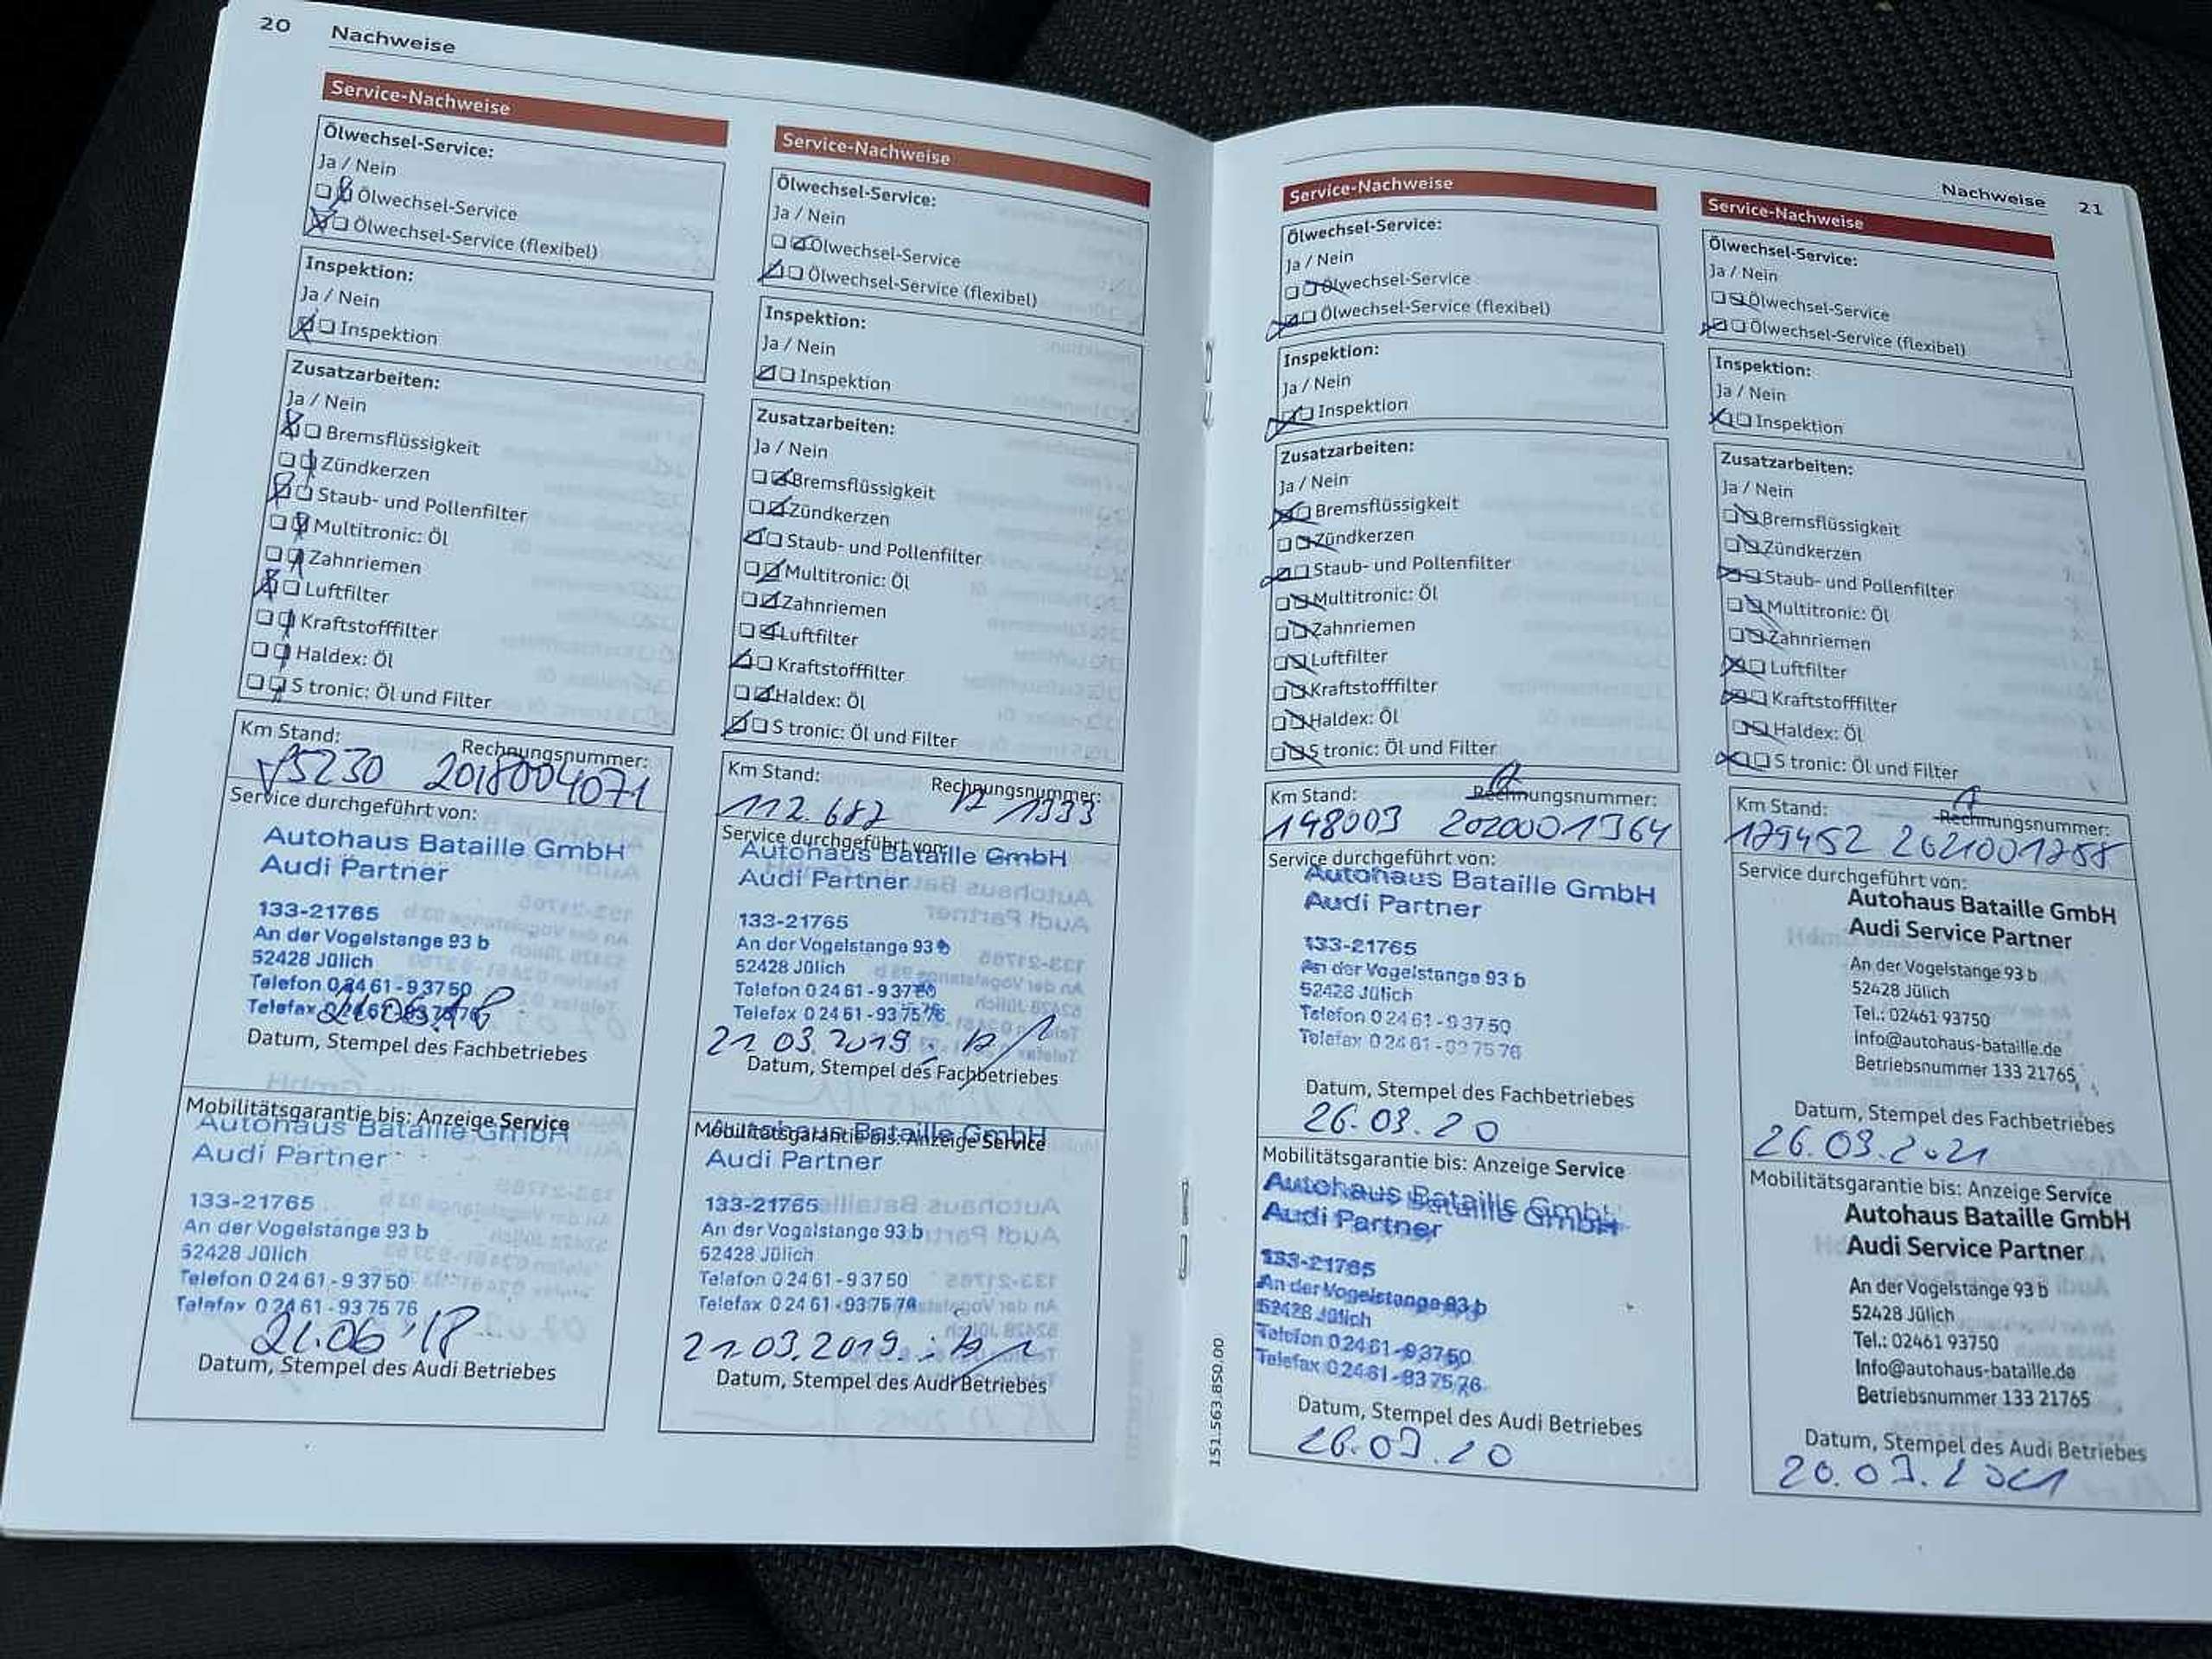 20 Nachweise
Service-Nachweise
Ölwechsel-Service:
Ja / Nein
Ölwechsel-Service
Ölwechsel-Service (flexibel)
Inspektion:
Ja / Nein
Inspektion
Zusatzarbeiten:
Ja / Nein
Bremsflüssigkeit
Zündkerzen
Staub- und Pollenfilter
Multitronic: Öl
Zahnriemen
Luftfilter
Kraftstofffilter
Haldex: Öl
S tronic: Öl und Filter
Km Stand: Rechnungsnummer:
75230 2018004071
Service durchgeführt von:
Autohaus Bataille GmbH
Audi Partner
133-21765
An der Vogelstange 93 b
52428 Jülich
Telefon 0 24 61 - 9 37 50
Telefax 0 24 61 - 93 75 76
21.06.18
Datum, Stempel des Fachbetriebes
Mobilitätsgarantie bis: Anzeige Service
Autohaus Bataille GmbH
Audi Partner
133-21765
An der Vogelstange 93 b
52428 Jülich
Telefon 0 24 61 - 9 37 50
Telefax 0 24 61 - 93 75 76
21.06.18
Datum, Stempel des Audi Betriebes
Service-Nachweise
Ölwechsel-Service:
Ja / Nein
Ölwechsel-Service
Ölwechsel-Service (flexibel)
Inspektion:
Ja / Nein
Inspektion
Zusatzarbeiten:
Ja / Nein
Bremsflüssigkeit
Zündkerzen
Staub- und Pollenfilter
Multitronic: Öl
Zahnriemen
Luftfilter
Kraftstofffilter
Haldex: Öl
S tronic: Öl und Filter
Km Stand: Rechnungsnummer:
112.687 1333
Service durchgeführt von:
Autohaus Bataille GmbH
Audi Partner
133-21765
An der Vogelstange 93 b
52428 Jülich
Telefon 0 24 61 - 9 37 50
Telefax 0 24 61 - 93 75 76
21.03.2019
Datum, Stempel des Fachbetriebes
Mobilitätsgarantie bis: Anzeige Service
Autohaus Bataille GmbH
Audi Partner
133-21765
An der Vogelstange 93 b
52428 Jülich
Telefon 0 24 61 - 9 37 50
Telefax 0 24 61 - 93 75 76
21.03.2019
Datum, Stempel des Audi Betriebes
Nachweise 21
Service-Nachweise
Ölwechsel-Service:
Ja / Nein
Ölwechsel-Service
Ölwechsel-Service (flexibel)
Inspektion:
Ja / Nein
Inspektion
Zusatzarbeiten:
Ja / Nein
Bremsflüssigkeit
Zündkerzen
Staub- und Pollenfilter
Multitronic: Öl
Zahnriemen
Luftfilter
Kraftstofffilter
Haldex: Öl
S tronic: Öl und Filter
Km Stand: Rechnungsnummer:
148003 2020001364
Service durchgeführt von:
Autohaus Bataille GmbH
Audi Partner
133-21765
An der Vogelstange 93 b
52428 Jülich
Telefon 0 24 61 - 9 37 50
Telefax 0 24 61 - 93 75 76
Datum, Stempel des Fachbetriebes
26.03.20
Mobilitätsgarantie bis: Anzeige Service
Autohaus Bataille GmbH
Audi Partner
133-21765
An der Vogelstange 93 b
52428 Jülich
Telefon 0 24 61 - 9 37 50
Telefax 0 24 61 - 93 75 76
Datum, Stempel des Audi Betriebes
26.03.20
151.563.850.00
Service-Nachweise
Ölwechsel-Service:
Ja / Nein
Ölwechsel-Service
Ölwechsel-Service (flexibel)
Inspektion:
Ja / Nein
Inspektion
Zusatzarbeiten:
Ja / Nein
Bremsflüssigkeit
Zündkerzen
Staub- und Pollenfilter
Multitronic: Öl
Zahnriemen
Luftfilter
Kraftstofffilter
Haldex: Öl
S tronic: Öl und Filter
Km Stand: Rechnungsnummer:
179452 2021001258
Service durchgeführt von:
Autohaus Bataille GmbH
Audi Service Partner
An der Vogelstange 93 b
52428 Jülich
Tel.: 02461 93750
Info@autohaus-bataille.de
Betriebsnummer 133 21765
Datum, Stempel des Fachbetriebes
26.03.2021
Mobilitätsgarantie bis: Anzeige Service
Autohaus Bataille GmbH
Audi Service Partner
An der Vogelstange 93 b
52428 Jülich
Tel.: 02461 93750
Info@autohaus-bataille.de
Betriebsnummer 133 21765
Datum, Stempel des Audi Betriebes
20.03.2021